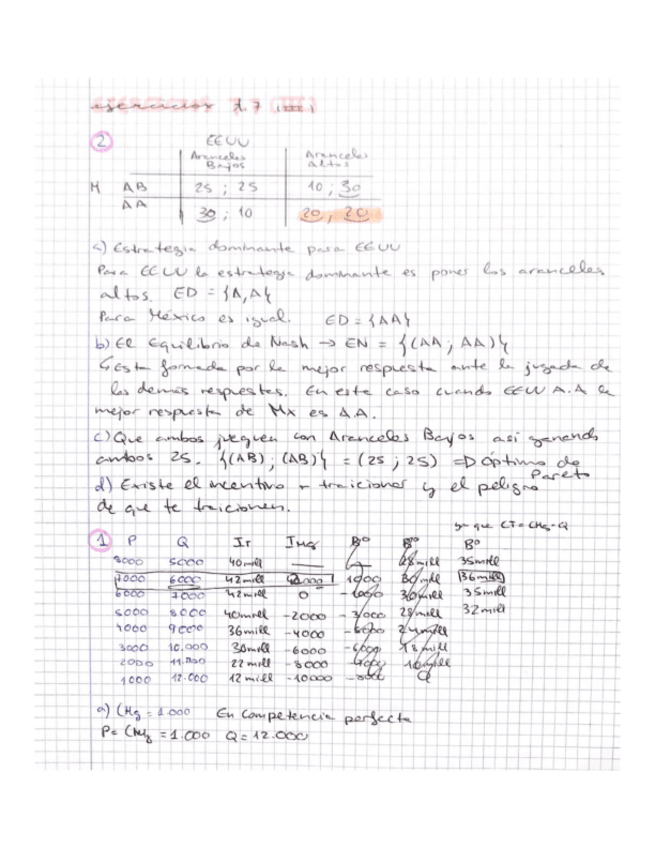 ejercicios 1.7 (III)
2 EEUU
Aranceles Bajos Aranceles altos
M AB 25 ; 25 10 ; 30
AA 30 ; 10 20 , 20
a) Estrategia dominante para EEUU
Para EEUU la estrategia dominante es poner los aranceles
altos. ED = {A,A}
Para México es igual. ED = {AA}
b) El Equilibrio de Nash → EN = {(AA ; AA)}
↳ Esta formada por la mejor respuesta ante la jugada de
los demás respuestas. En este caso cuando EEUU A.A la
mejor respuesta de Mx es A.A.
c) Que ambos jueguen con Aranceles Bajos asi ganando
ambos 25. {(AB) ; (AB)} = (25 ; 25) => Óptimo de
Pareto
d) Existe el incentivo a traicionar y el peligro
de que te traicionen.
ya que CT = CMg·Q
1 P Q It IMg Bº Bº Bº
8000 5000 40mill — 28mill 35mill
7000 6000 42mill 2000 1000 30mill 36mill
6000 7000 42mill 0 -1000 30mill 35mill
5000 8000 40mill -2000 -3000 28mill 32mill
4000 9000 36mill -4000 24mill
3000 10.000 30mill -6000 18mill
2000 11.000 22mill -8000 10mill
1000 12.000 12mill -10000 0
a) CMg = 1.000 En competencia perfecta
P = CMg = 1.000 Q = 12.000